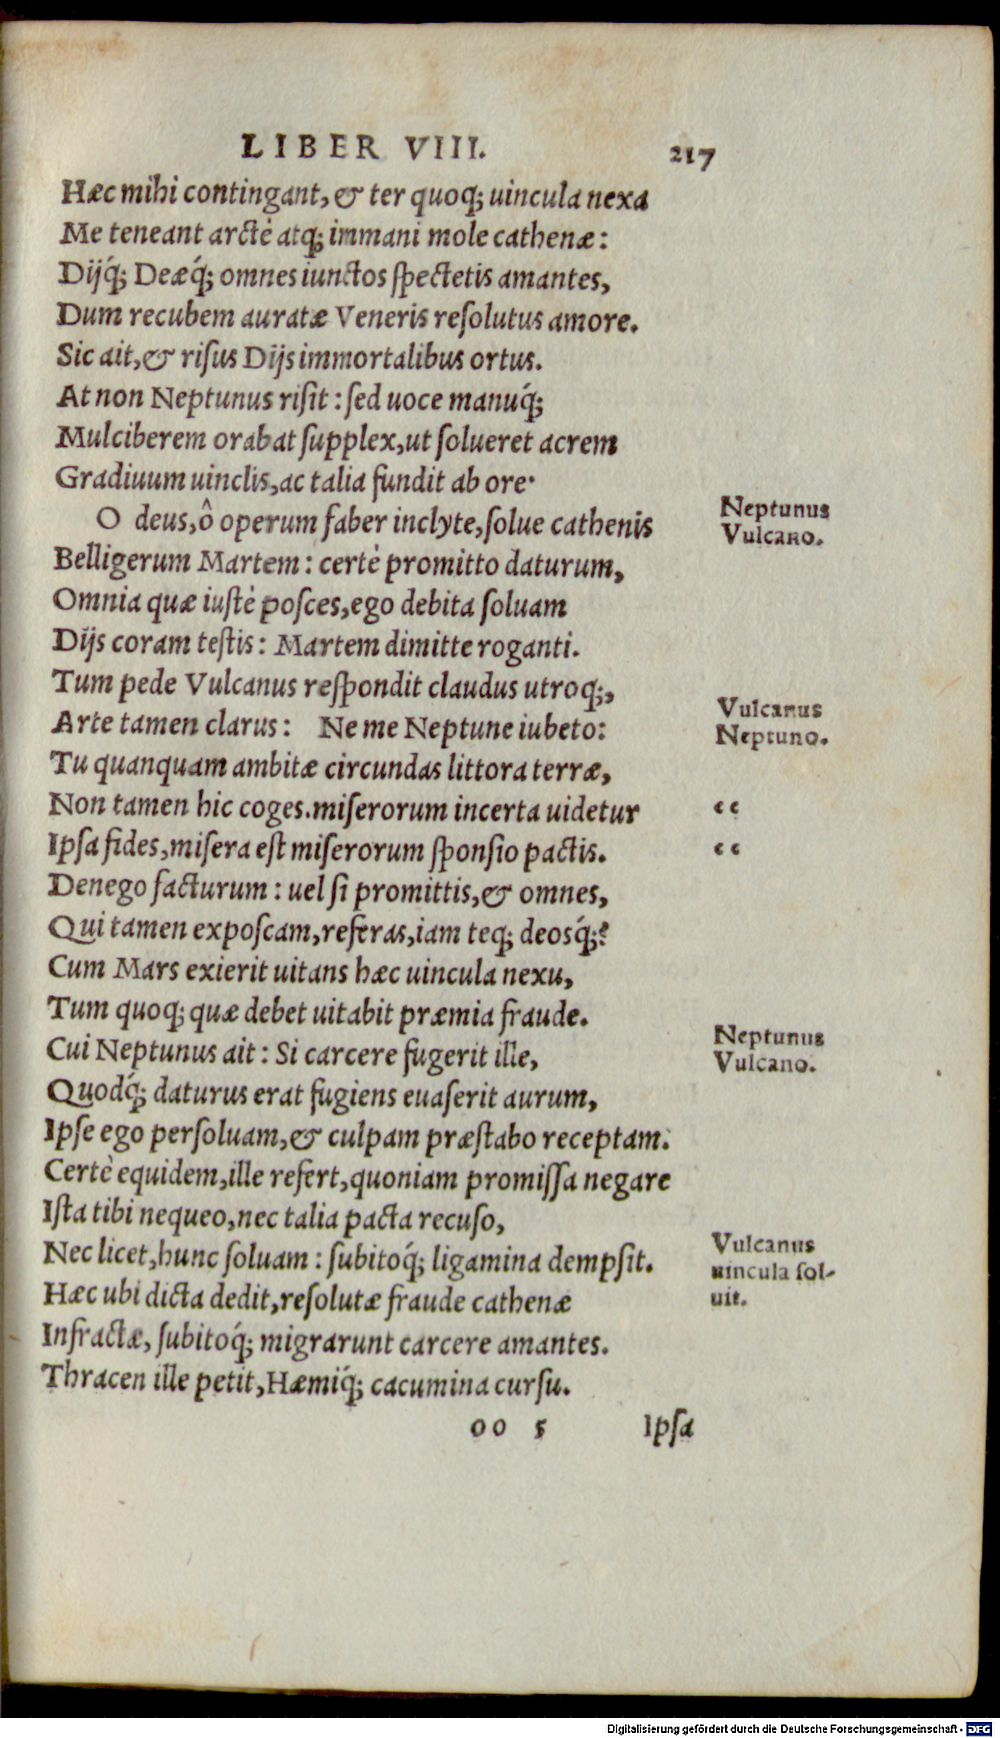 LIBER VIII. 217
Hæc mihi contingant, & ter quoq; uincula nexa
Me teneant arctè atq; immani mole cathenæ:
Dijq́; Deæq́; omnes iunctos ſpectetis amantes,
Dum recubem auratæ Veneris reſolutus amore.
Sic ait, & riſus Dijs immortalibus ortus.
At non Neptunus riſit: ſed uoce manuq́;
Mulciberem orabat ſupplex, ut ſolueret acrem
Gradiuum uinclis, ac talia fundit ab ore.
O deus, ô operum faber inclyte, ſolue cathenis
Neptunus
Vulcano.
Belligerum Martem: certè promitto daturum,
Omnia quæ iuſtè poſces, ego debita ſoluam
Dijs coram teſtis: Martem dimitte roganti.
Tum pede Vulcanus reſpondit claudus utroq;,
Arte tamen clarus: Ne me Neptune iubeto:
Vulcanus
Neptuno.
Tu quanquam ambitæ circundas littora terræ,
Non tamen hic coges. miſerorum incerta uidetur “
Ipſa fides, miſera eſt miſerorum ſponſio pactis. “
Denego facturum: uel ſi promittis, & omnes,
Qui tamen expoſcam, referas, iam teq; deosq́;?
Cum Mars exierit uitans hæc uincula nexu,
Tum quoq; quæ debet uitabit præmia fraude.
Cui Neptunus ait: Si carcere fugerit ille,
Neptunus
Vulcano.
Quodq́; daturus erat fugiens euaſerit aurum,
Ipſe ego perſoluam, & culpam præſtabo receptam.
Certè equidem, ille refert, quoniam promiſſa negare
Iſta tibi nequeo, nec talia pacta recuſo,
Nec licet, hunc ſoluam: ſubitoq́; ligamina dempſit.
Vulcanus
uincula ſol-
uit.
Hæc ubi dicta dedit, reſolutæ fraude cathenæ
Infractæ, ſubitoq́; migrarunt carcere amantes.
Thracen ille petit, Hæmiq́; cacumina curſu.
oo 5 Ipſa
Digitalisierung gefördert durch die Deutsche Forschungsgemeinschaft - DFG